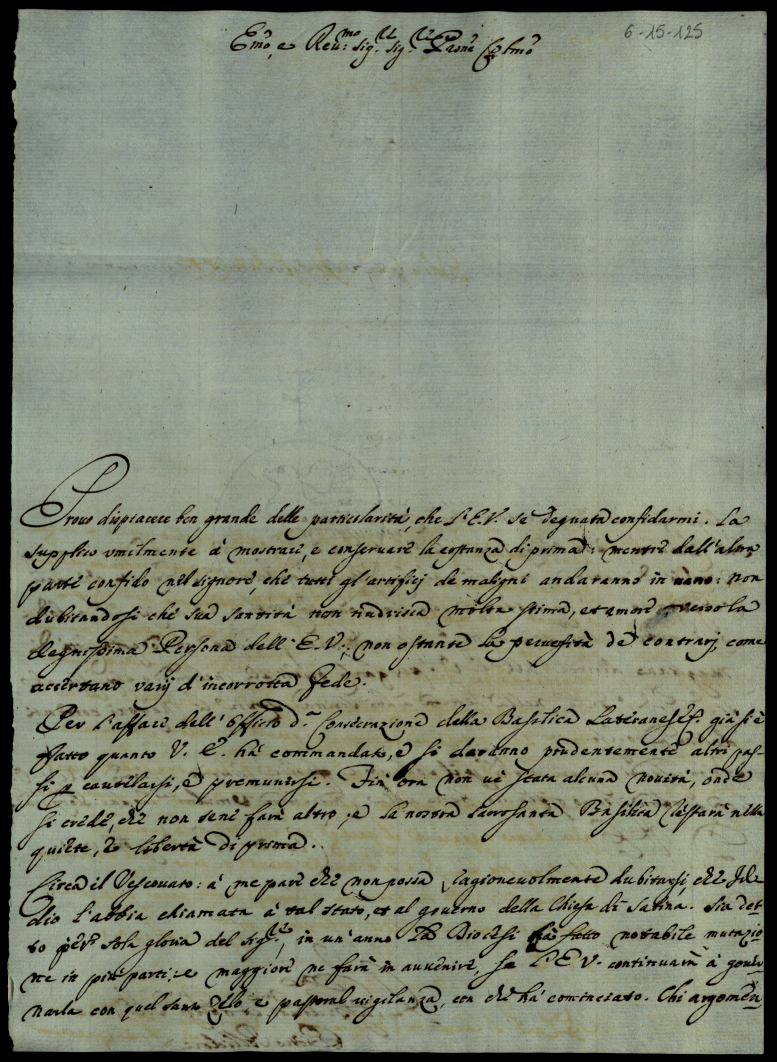 6-15-125
Em̃o, e Reu:mo Sig.r Sig.r Pron̄e Colmo
Prouo dispiacere ben grande delle particolarità, che L'E.V. s'è degnata confidarmi. La
supplico vmilmente à mostrare, e conseruare la costanza di prima: mentre dall'altra
parte confido nel Signore, che tutti gl'artificij de maligni andaranno in uano: non
dubitandosi che sua santità non nudrisca molta stima, et amore uerso la
degnissima Persona dell'E.V., non ostante la peruersità de contrarij, come
accertano varij d'incorrotta fede.
Per l'affare dell'Officio d.a Consecrazione della Basilica Lateranese, già si è
fatto quanto V. E. hà commandato, e si daranno prudentemente altri pas-
si p cautelarsi, e premunirsi. Fin ora non ue stata alcuna nouità, onde
si crede, che non sene farà altro, e la nostra sacrosanta Basilica restarà nella
quiete, e libertà di prima.
Circa il Vescouato: à me pare che non possa ragioneuolmente dubitarsi, che Id-
dio l'abbia chiamata à tal stato, et al gouerno della Chiesa di Sabina. Sia det-
to p sola gloria del Sig.re, in un'anno la Diocesi hà fatto notabile mutazio
ne in più parti: e maggiore ne farà in auuenire, se L'E.V. continuarà à gouer-
narla con quel santo zelo e pastoral vigilanza, con che hà cominciato. Chi argomen